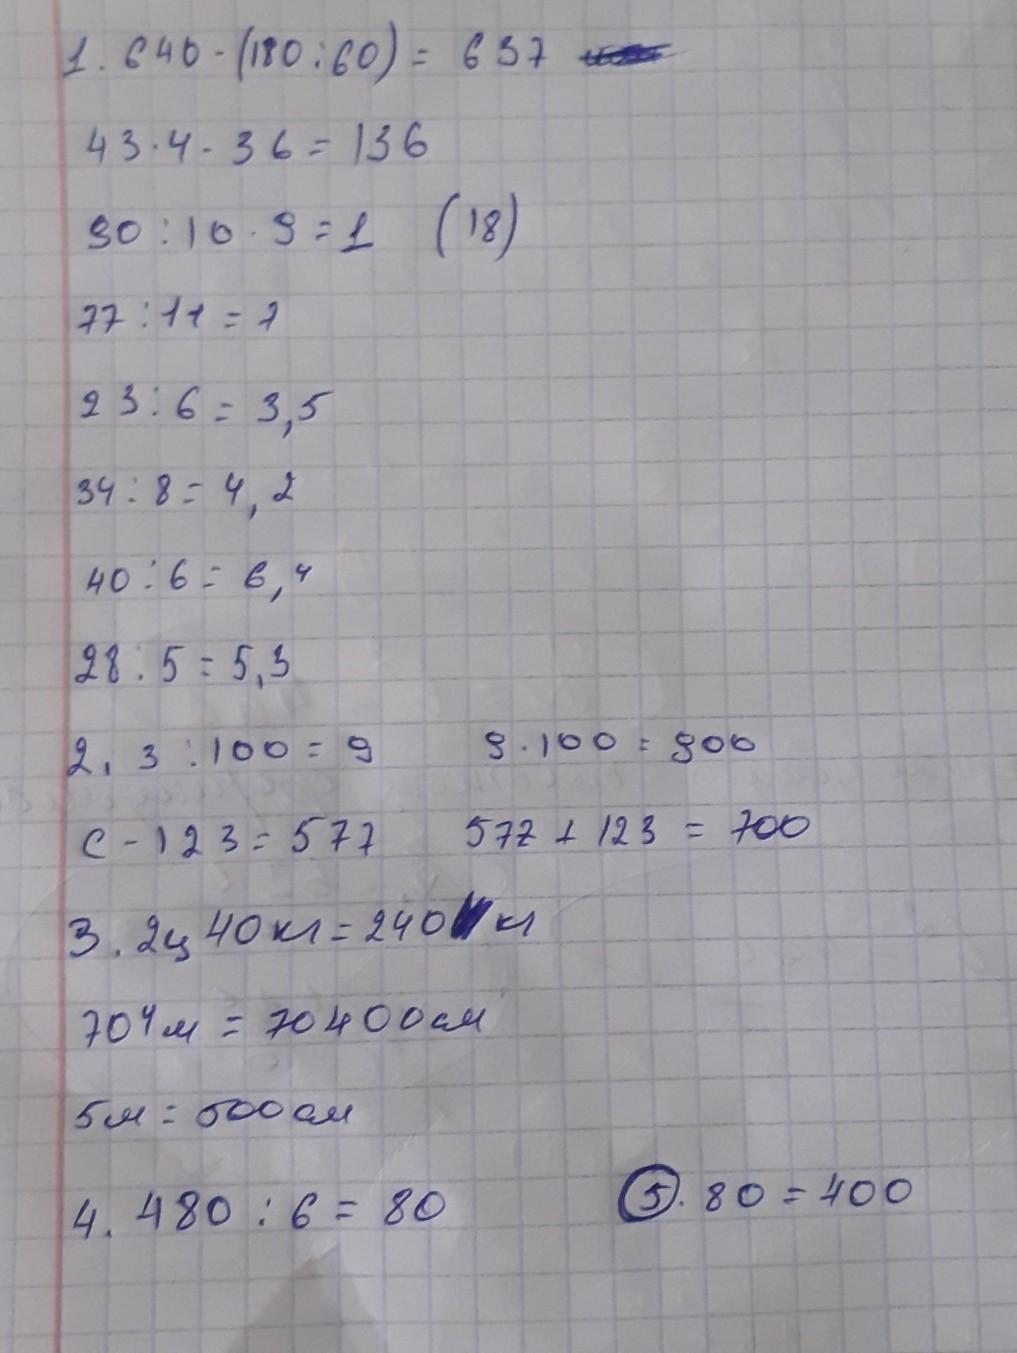 1. 640 - (180 : 60) = 637
43 · 4 - 36 = 136
90 : 10 · 9 = 1 (18)
77 : 11 = 7
23 : 6 = 3,5
34 : 8 = 4,2
40 : 6 = 6,4
28 : 5 = 5,3
2. 3 : 100 = 9 9 · 100 = 900
с - 123 = 577 577 + 123 = 700
3. 2ц 40кг = 240 кг
704м = 70400см
5м = 500см
4. 480 : 6 = 80 5 · 80 = 400